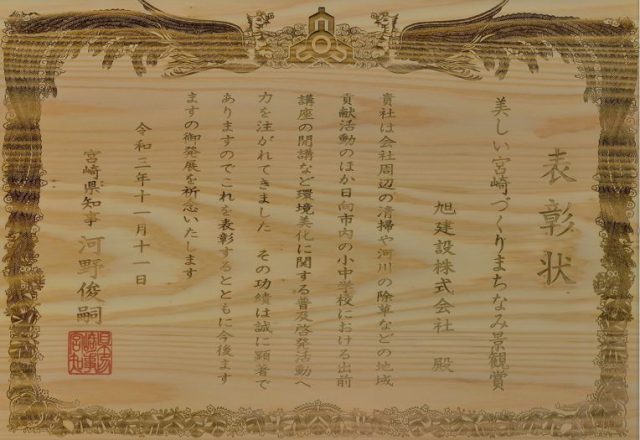 表彰状
美しい宮崎づくりまちなみ景観賞
旭建設株式会社 殿
貴社は会社周辺の清掃や河川の除草などの地域
貢献活動のほか日向市内の小中学校における出前
講座の開講など環境美化に関する普及啓発活動へ
力を注がれてきました その功績は誠に顕著で
ありますのでこれを表彰するとともに今後ます
ますの御発展を祈念いたします
令和二年十一月十一日
宮崎県知事 河野俊嗣